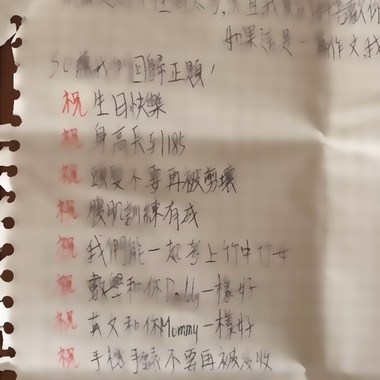 如果這是一篇作文我
SO讓我們回歸正題!
祝 生日快樂
祝 身高長到185
祝 頭髮不要再被剪壞
祝 腹肌訓練有成
祝 我們能一起考上竹中竹女
祝 數學和你Daddy一樣好
祝 英文和你Mommy一樣好
祝 手機手錶不要再被沒收